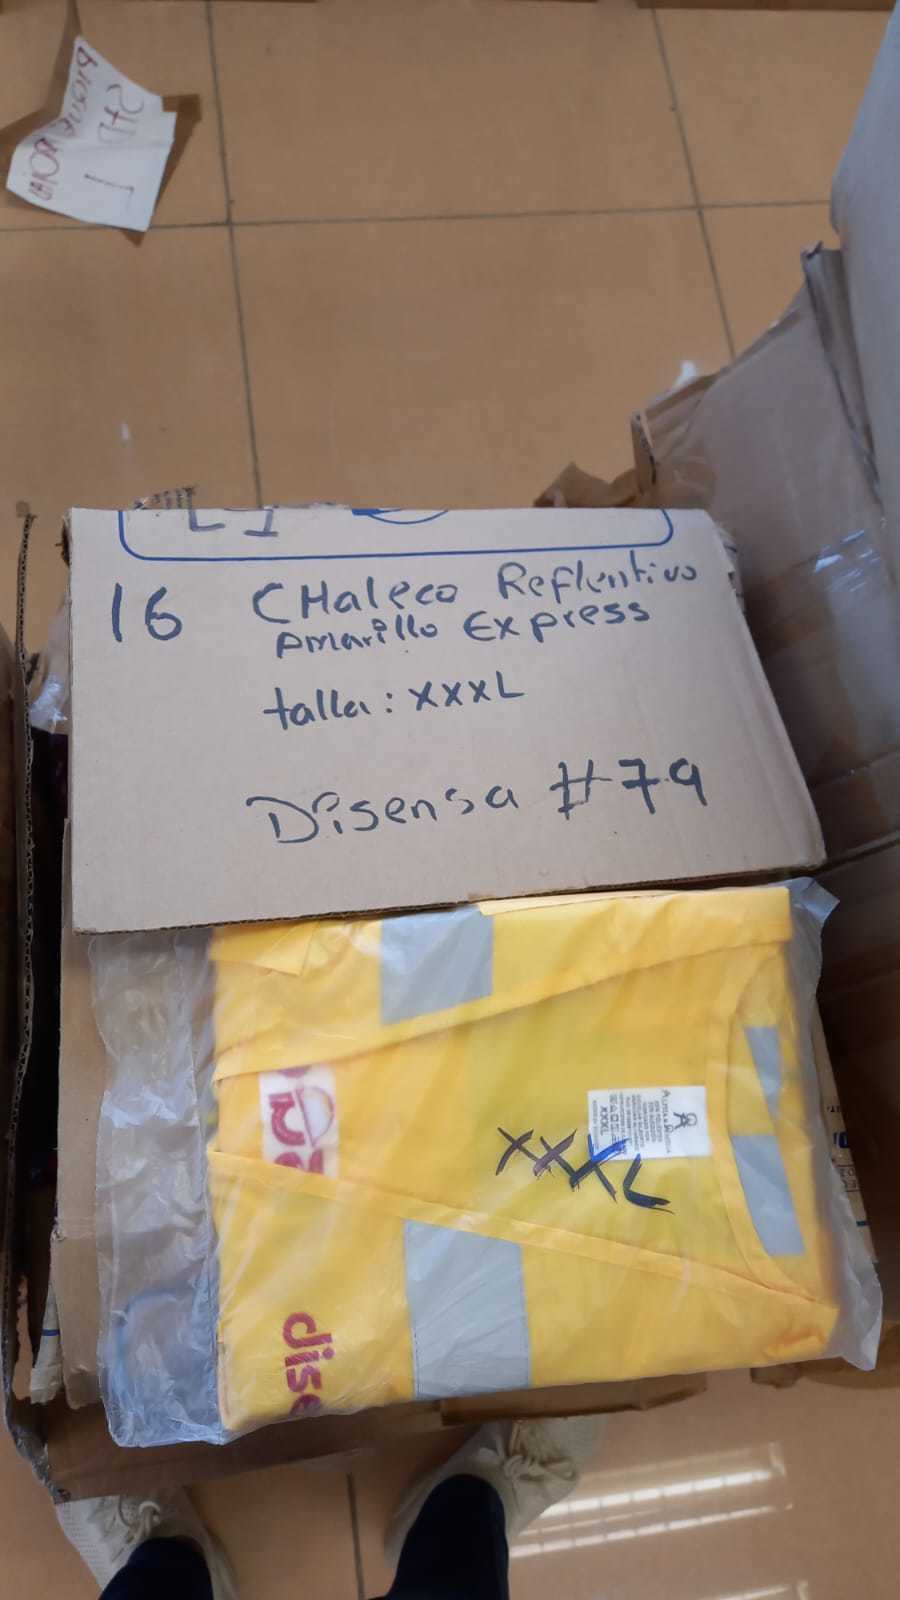 STD
1
16 CHaleco Reflentivo
Amarillo Express
talla: XXXL
Disensa #79
XXXL
XXXL
dise